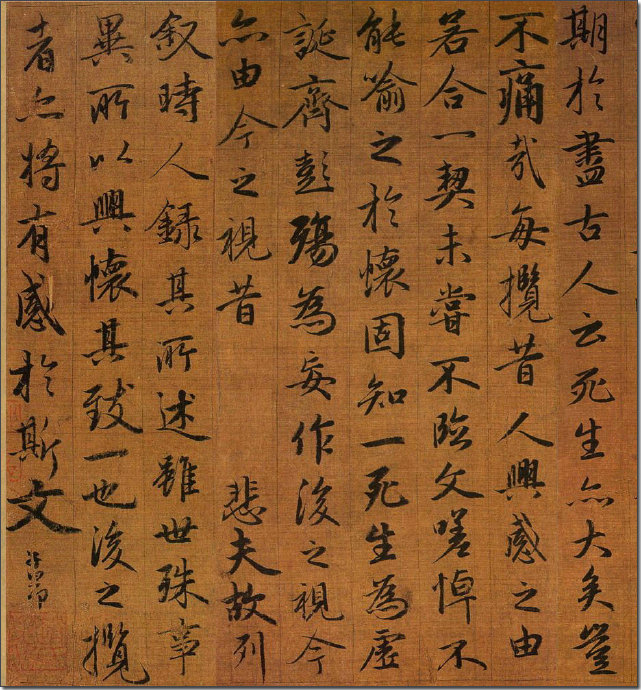 期於盡古人云死生亦大矣豈
不痛哉每攬昔人興感之由
若合一契未嘗不臨文嗟悼不
能喻之於懷固知一死生為虛
誕齊彭殤為妄作後之視今
亦由今之視昔 悲夫故列
敘時人錄其所述雖世殊事
異所以興懷其致一也後之攬
者亦將有感於斯文